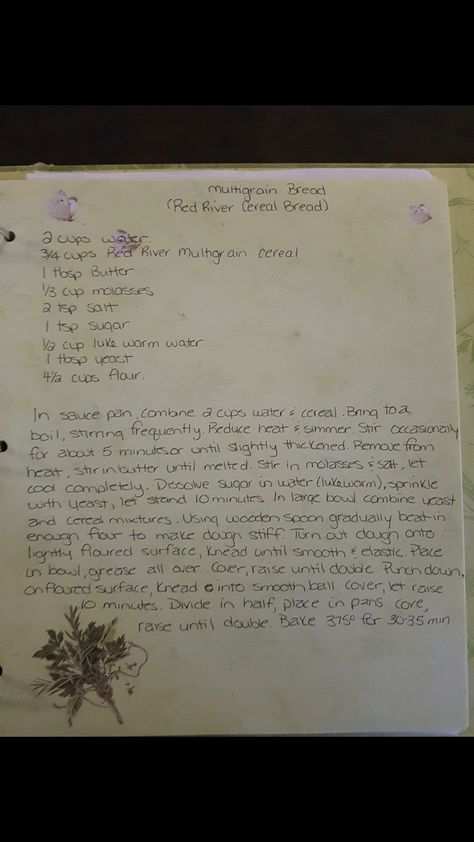 multigrain Bread
(Red River Cereal Bread)
2 cups water.
3/4 cups Red River Multigrain cereal
1 tbsp Butter
1/3 cup molasses
2 tsp salt
1 tsp sugar
1/2 cup luke warm water
1 tbsp yeast
4 1/2 cups flour.
In sauce pan, combine 2 cups water & cereal. Bring to a
boil, stirring frequently. Reduce heat & simmer. Stir occasionally
for about 5 minutes or until slightly thickened. Remove from
heat, stir in butter until melted. Stir in molasses & salt, let
cool completely. Dissolve sugar in water (lukewarm), sprinkle
with yeast, let stand 10 minutes. In large bowl combine yeast
and cereal mixtures. Using wooden spoon gradually beat in
enough flour to make dough stiff. Turn out dough onto
lightly floured surface, knead until smooth & elastic. Place
in bowl, grease all over. Cover, raise until double. Punch down,
on floured surface, knead into smooth ball. Cover, let raise
10 minutes. Divide in half, place in pans. core,
raise until double. Bake 375° for 30-35 min.